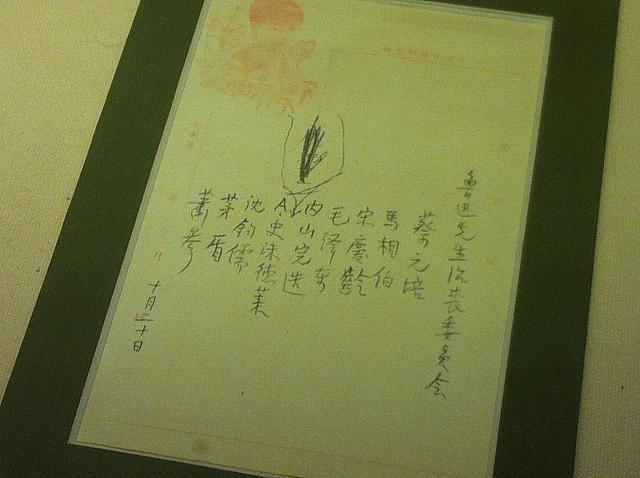 魯迅先生治喪委員会
蔡元培
馬相伯
宋慶齡
毛澤東
内山完造
A.史沫德萊
沈鈞儒
茅盾
蕭參
十月二十日